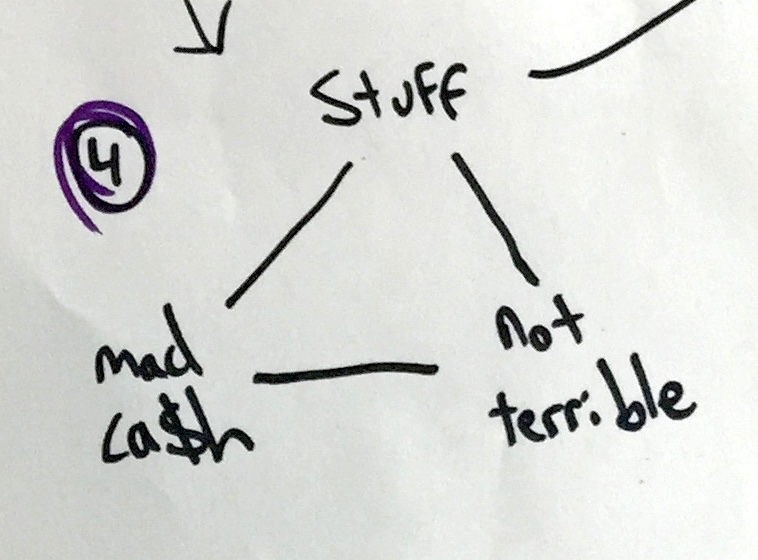 Stuff
4
mad
ca$h
not
terrible